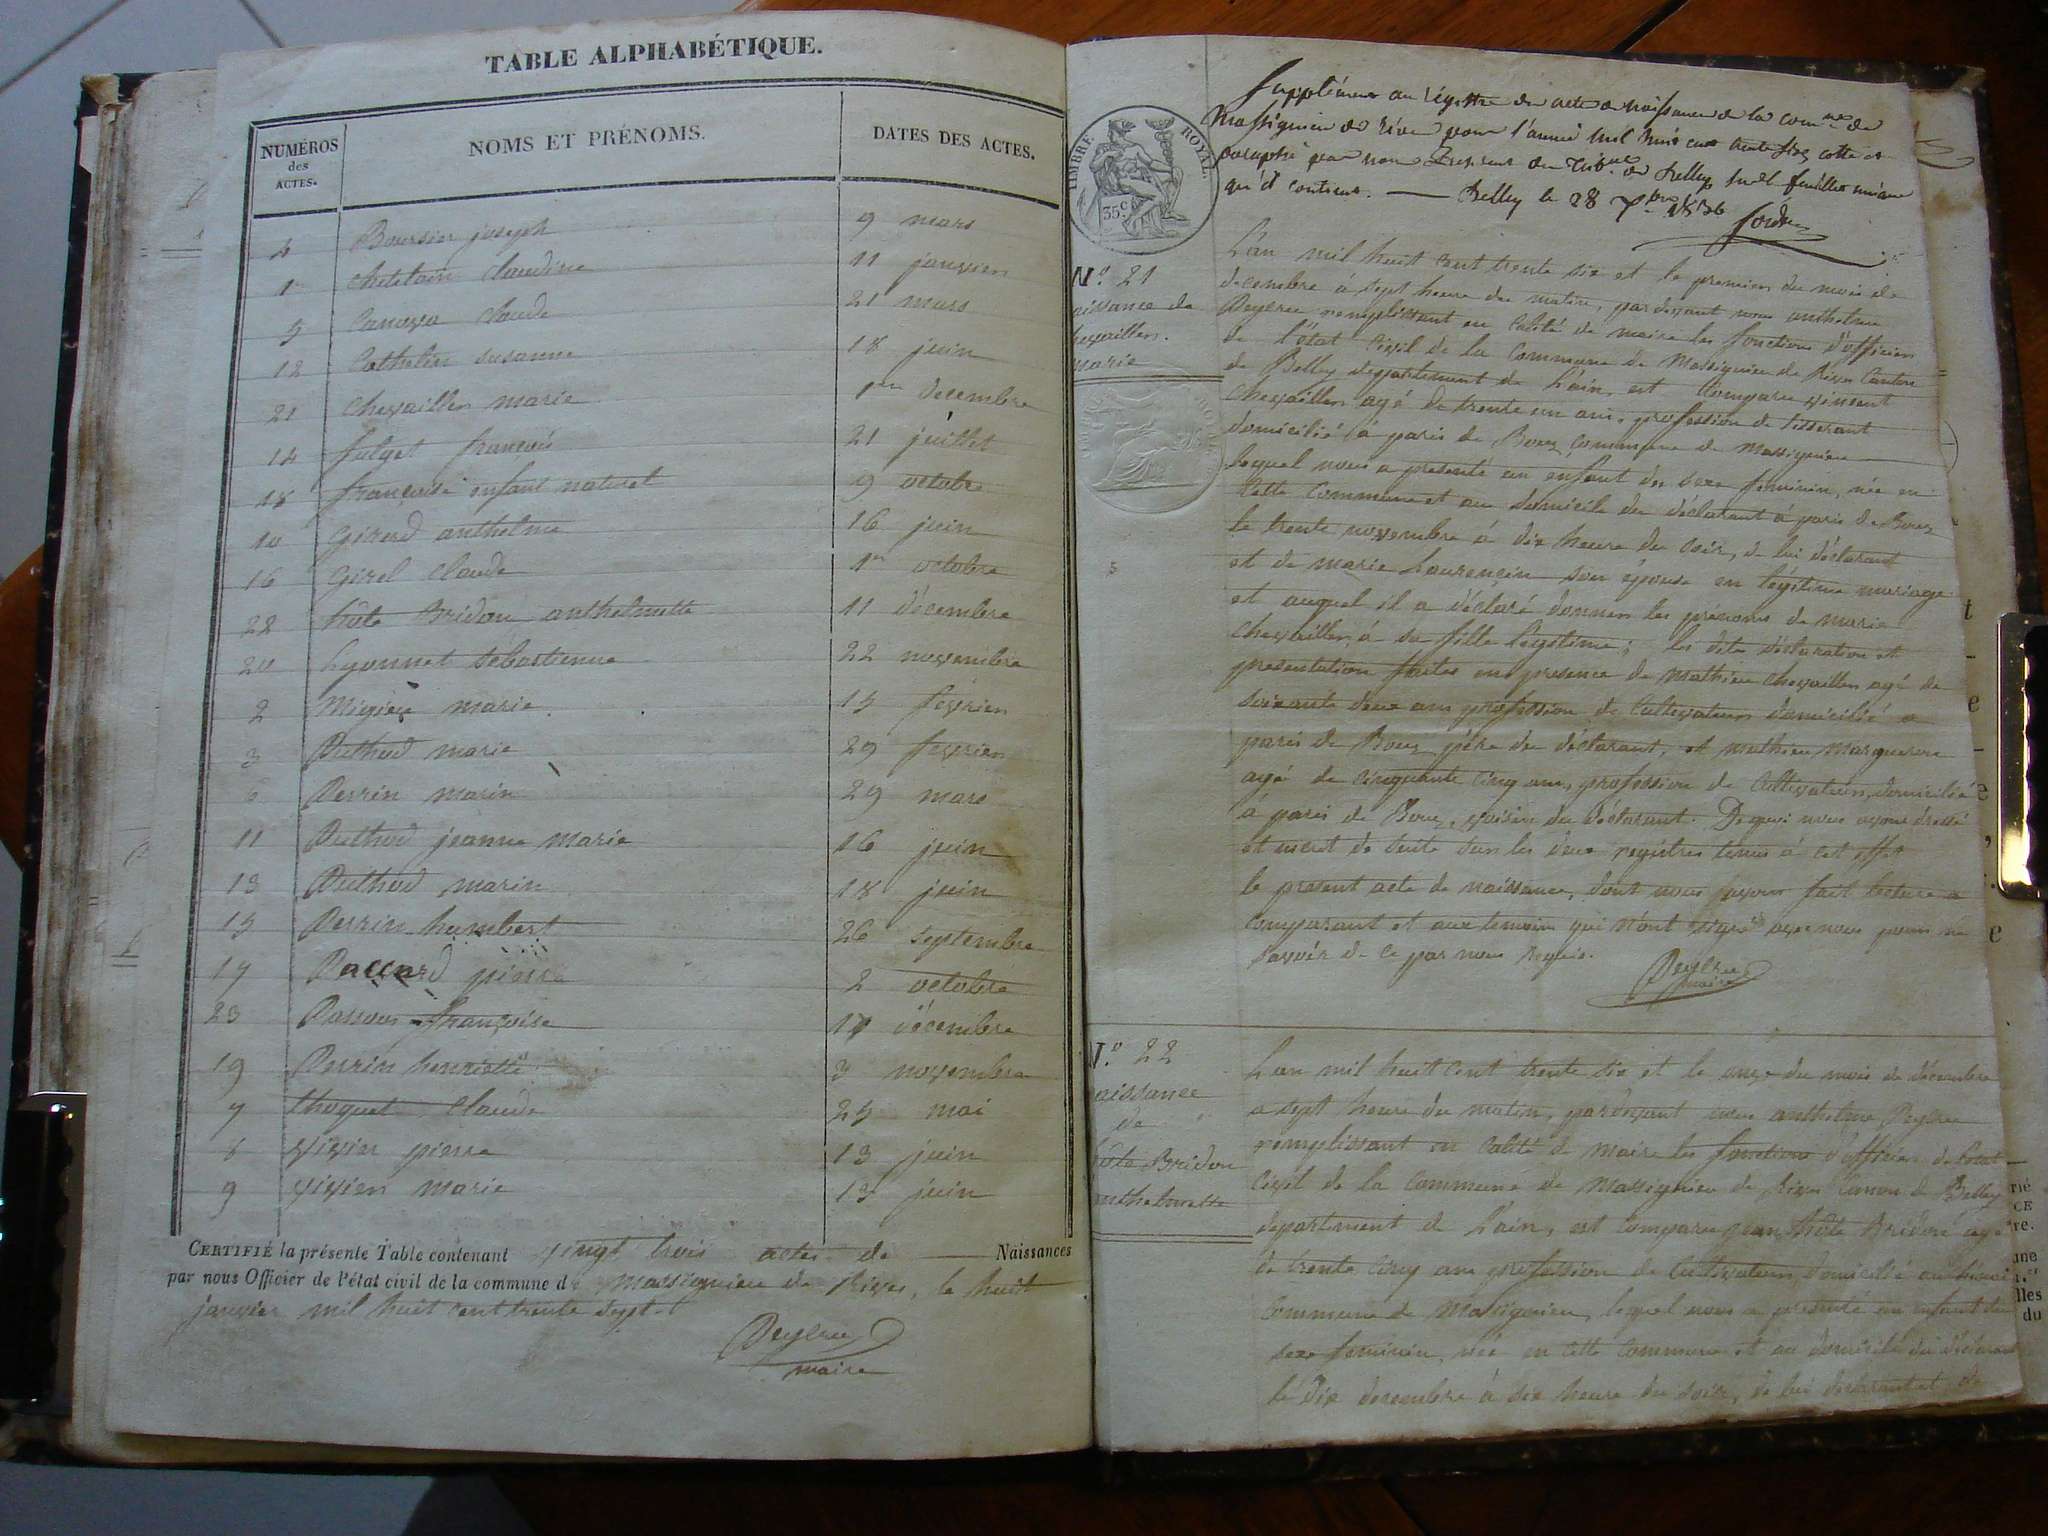 TABLE ALPHABÉTIQUE.
NUMÉROS des ACTES.
NOMS ET PRÉNOMS.
DATES DES ACTES.
4 Boursier joseph 9 mars
1er chatelain Claudine 11 janvier
5 Canova Claude 21 mars
12 Cathelin susanne 18 juin
21 Chevailler marie 1er decembre
14 francois 21 juillet
18 françoise enfant naturel 9 octobre
10 Girerd anthelme 16 juin
16 Girel Claude 1er octobre
22 hôte Bridon anthelmette 11 décembre
20 Lyonnet Sébastienne 22 novembre
2 marie 15 fevrier
3 Puthod marie 29 fevrier
6 Perrin marin 29 mars
11 Puthod jeanne marie 16 juin
13 Puthod marin 18 juin
15 Perrin humbert 26 septembre
17 Paccard pierre 2 octobre
23 françoise 17 décembre
19 Perrin henriette 3 novembre
7 thoquet Claude 25 mai
8 vivier pierre 13 juin
9 vivien marie 13 juin
CERTIFIÉ la présente Table contenant vingt trois actes de Naissances
par nous Officier de l'état civil de la commune de Massignieu de Rives, le huit
janvier mil huit cent trente sept
Peyleu
maire
TIMBRE ROYAL.
35c
Supplément au régistre des actes de naissance de la comne de
Massignieu de rives pour l'année mil huit cent trente six cotté et
paraphé par nous Président du tribal de Belley feuillet
qu'il contient. Belley le 28 7bre 1836
No. 21
aissance de
hevailler.
marie
L'an mil huit cent trente six et le premier du mois de
decembre à sept heure du matin, pardevant nous anthelme
Peyleu remplissant en Calité de maire les fonctions d'officier
de l'état Civil de la Commune de Massignieu de Rives Canton
de Belley département de l'ain, est Comparu vinsent
Chevailler agé de trente un ans, profession de tisserant
domicilié à paris de Bouz Commune de Massignieu
lequel nous a presenté un enfant du sexe feminin, née en
Cette Commune et au domicile du déclarant à paris de Bouz
le trente novembre à dix heure du soir, de lui déclarant
et de marie Laurencin son épouse en légitime mariage
et auquel il a déclaré donner les prénoms de marie
Chevailler, à sa fille légitime; les dite déclaration et
presentation faites en presence de mathieu Chevailler agé de
soixante deux ans profession de Cultivateur domicilié a
paris de Bouz père du déclarant, et mathieu Margueron
agé de cinquante cinq ans, profession de Cultivateur, domicilié
à paris de Bouz, voisin du déclarant. De quoi nous avons dressé
et inscrit de suite sur les deux registres tenus à cet effet
le present acte de naissance, dont nous avons fait lecture a
Comparant et aux temoins qui n'ont signé avec nous pour ne
savoir de ce par nous Requis.
Peyleu
maire
No. 22
aissance
de
hôte Bridon
anthelmette
L'an mil huit cent trente six et le onze du mois de décembre
a sept heure du matin, pardevant nous anthelme Peyleu
remplissant en Calité de Maire les fonctions d'officier de l'etat
Civil de la Commune de Massignieu de Rives Canton de Belley
departement de L'ain, est Comparu jean hôte Bridon agé
de trente Cinq ans profession de Cultivateur, domicilié au
Commune de Massignieu, lequel nous a presenté un enfant du
sexe feminin, née en Cette Commune et au domicile du déclarant
le dix decembre à dix heure du soir, de lui declarant et de